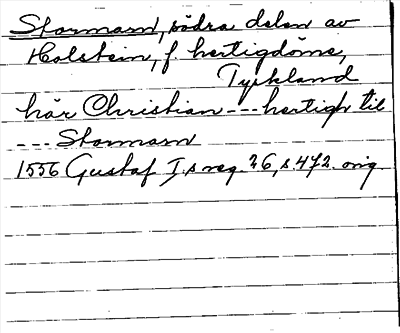 Stormarn, södra delen av
Holstein, f. hertigdöme,
Tyskland
här Christian --- hertigh til
--- Stormarn
1556 Gustaf I.s reg. 26, s. 472. orig.